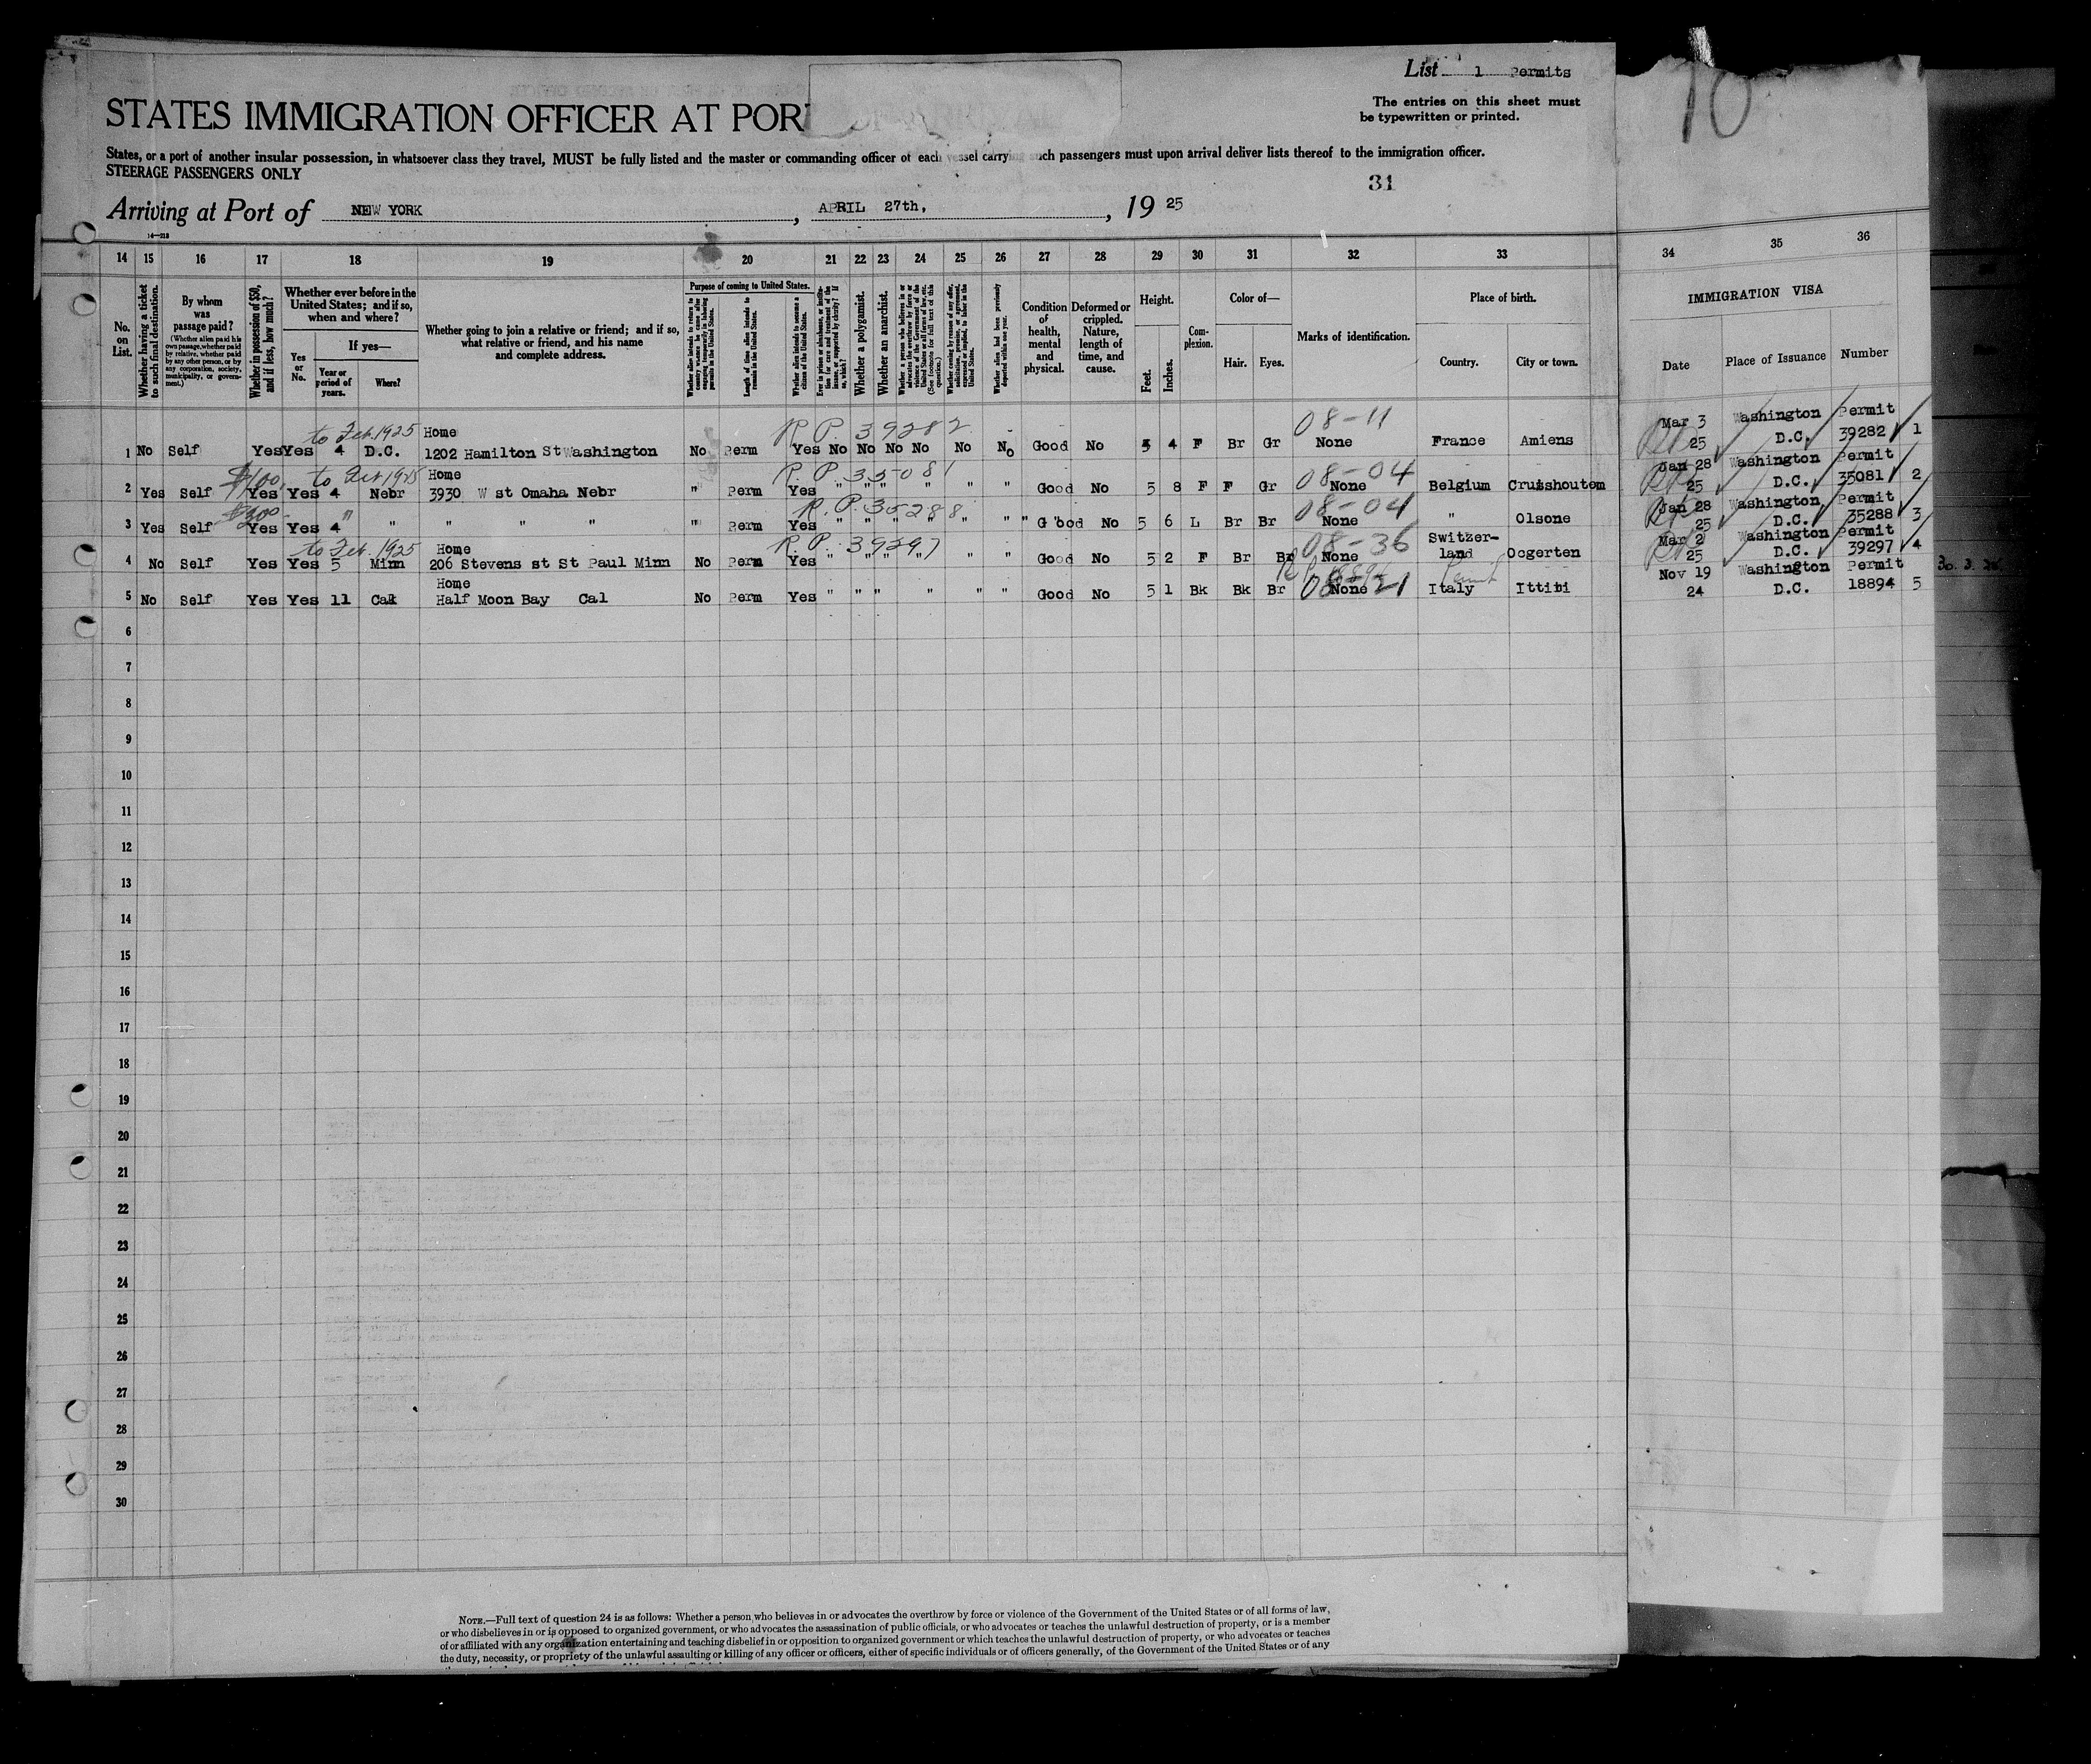 List 1 Permits
STATES IMMIGRATION OFFICER AT POR
The entries on this sheet must
be typewritten or printed.
10
States, or a port of another insular possession, in whatsoever class they travel, MUST be fully listed and the master or commanding officer of each vessel carrying such passengers must upon arrival deliver lists thereof to the immigration officer.
STEERAGE PASSENGERS ONLY
31
Arriving at Port of NEW YORK, APRIL 27th, 19 25
14 15 16 17 18 19 20 21 22 23 24 25 26 27 28 29 30 31 32 33 34 35 36
No. on List.
Whether having a ticket to such final destination.
By whom was passage paid?
(Whether alien paid his own passage, whether paid by relative, whether paid by any other person, or by any corporation, society, municipality, or government.)
Whether in possession of $50, and if less, how much?
Whether ever before in the United States; and if so, when and where?
Yes or No.
If yes—
Year or period of years.
Where?
Whether going to join a relative or friend; and if so, what relative or friend, and his name and complete address.
Purpose of coming to United States.
Whether alien intends to return to country whence he came after engaging temporarily in laboring pursuits in the United States.
Length of time alien intends to remain in the United States.
Whether alien intends to become a citizen of the United States.
Whether a polygamist.
Whether an anarchist.
Condition of health, mental and physical.
Deformed or crippled. Nature, length of time, and cause.
Height.
Feet.
Inches.
Complexion.
Color of—
Hair.
Eyes.
Marks of identification.
Place of birth.
Country.
City or town.
IMMIGRATION VISA
Date
Place of Issuance
Number
to Feb. 1925 Home R.P. 39282 08-11 Mar 3 Washington Permit
1 No Self Yes Yes 4 D.C. 1202 Hamilton St Washington No Perm Yes No No No No No No Good No 5 4 F Br Gr None France Amiens 25 D.C. 39282 1
$400, to Feb 1925 Home R.P. 35081 08-04 Jan 28 Washington Permit
2 Yes Self Yes Yes 4 Nebr 3930 W st Omaha Nebr " Perm Yes " " " " " " Good No 5 8 F F Gr None Belgium Cruishoutem 25 D.C. 35081 2
$300 " R.P. 35288 08-04 Jan 28 Washington Permit
3 Yes Self Yes Yes 4 " " " " " Perm Yes " " " " " " " G ood No 5 6 L Br Br None " Olsone 25 D.C. 35288 3
to Feb. 1925 Home R.P. 39297 08-36 Switzer- Mar 2 Washington Permit
4 No Self Yes Yes 5 Minn 206 Stevens st St Paul Minn No Perm Yes " " " " " " Good No 5 2 F Br Br None land Oogerten 25 D.C. 39297 4
Home R.P. 18894 08-21 Permit Nov 19 Washington Permit
5 No Self Yes Yes 11 Cal Half Moon Bay Cal No Perm Yes " " " " " " Good No 5 1 Bk Bk Br None Italy Ittiri 24 D.C. 18894 5
6
7
8
9
10
11
12
13
14
15
16
17
18
19
20
21
22
23
24
25
26
27
28
29
30
NOTE.—Full text of question 24 is as follows: Whether a person who believes in or advocates the overthrow by force or violence of the Government of the United States or of all forms of law,
or who disbelieves in or is opposed to organized government, or who advocates the assassination of public officials, or who advocates or teaches the unlawful destruction of property, or is a member
of or affiliated with any organization entertaining and teaching disbelief in or opposition to organized government or which teaches the unlawful destruction of property, or who advocates or teaches
the duty, necessity, or propriety of the unlawful assaulting or killing of any officer or officers, either of specific individuals or of officers generally, of the Government of the United States or of any